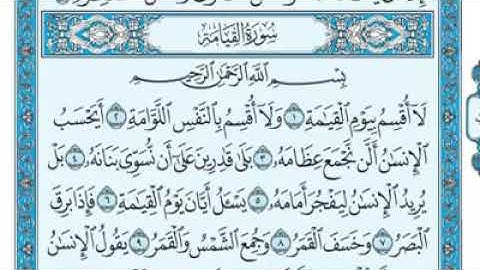 سُورَةُ القِيَامَةِ
بِسْمِ ٱللَّهِ ٱلرَّحْمَٰنِ ٱلرَّحِيمِ
لَآ أُقْسِمُ بِيَوْمِ ٱلْقِيَٰمَةِ ١ وَلَآ أُقْسِمُ بِٱلنَّفْسِ ٱللَّوَّامَةِ ٢ أَيَحْسَبُ
ٱلْإِنسَٰنُ أَلَّن نَّجْمَعَ عِظَامَهُۥ ٣ بَلَىٰ قَٰدِرِينَ عَلَىٰٓ أَن نُّسَوِّىَ بَنَانَهُۥ ٤ بَلْ
يُرِيدُ ٱلْإِنسَٰنُ لِيَفْجُرَ أَمَامَهُۥ ٥ يَسْـَٔلُ أَيَّانَ يَوْمُ ٱلْقِيَٰمَةِ ٦ فَإِذَا بَرِقَ
ٱلْبَصَرُ ٧ وَخَسَفَ ٱلْقَمَرُ ٨ وَجُمِعَ ٱلشَّمْسُ وَٱلْقَمَرُ ٩ يَقُولُ ٱلْإِنسَٰنُ